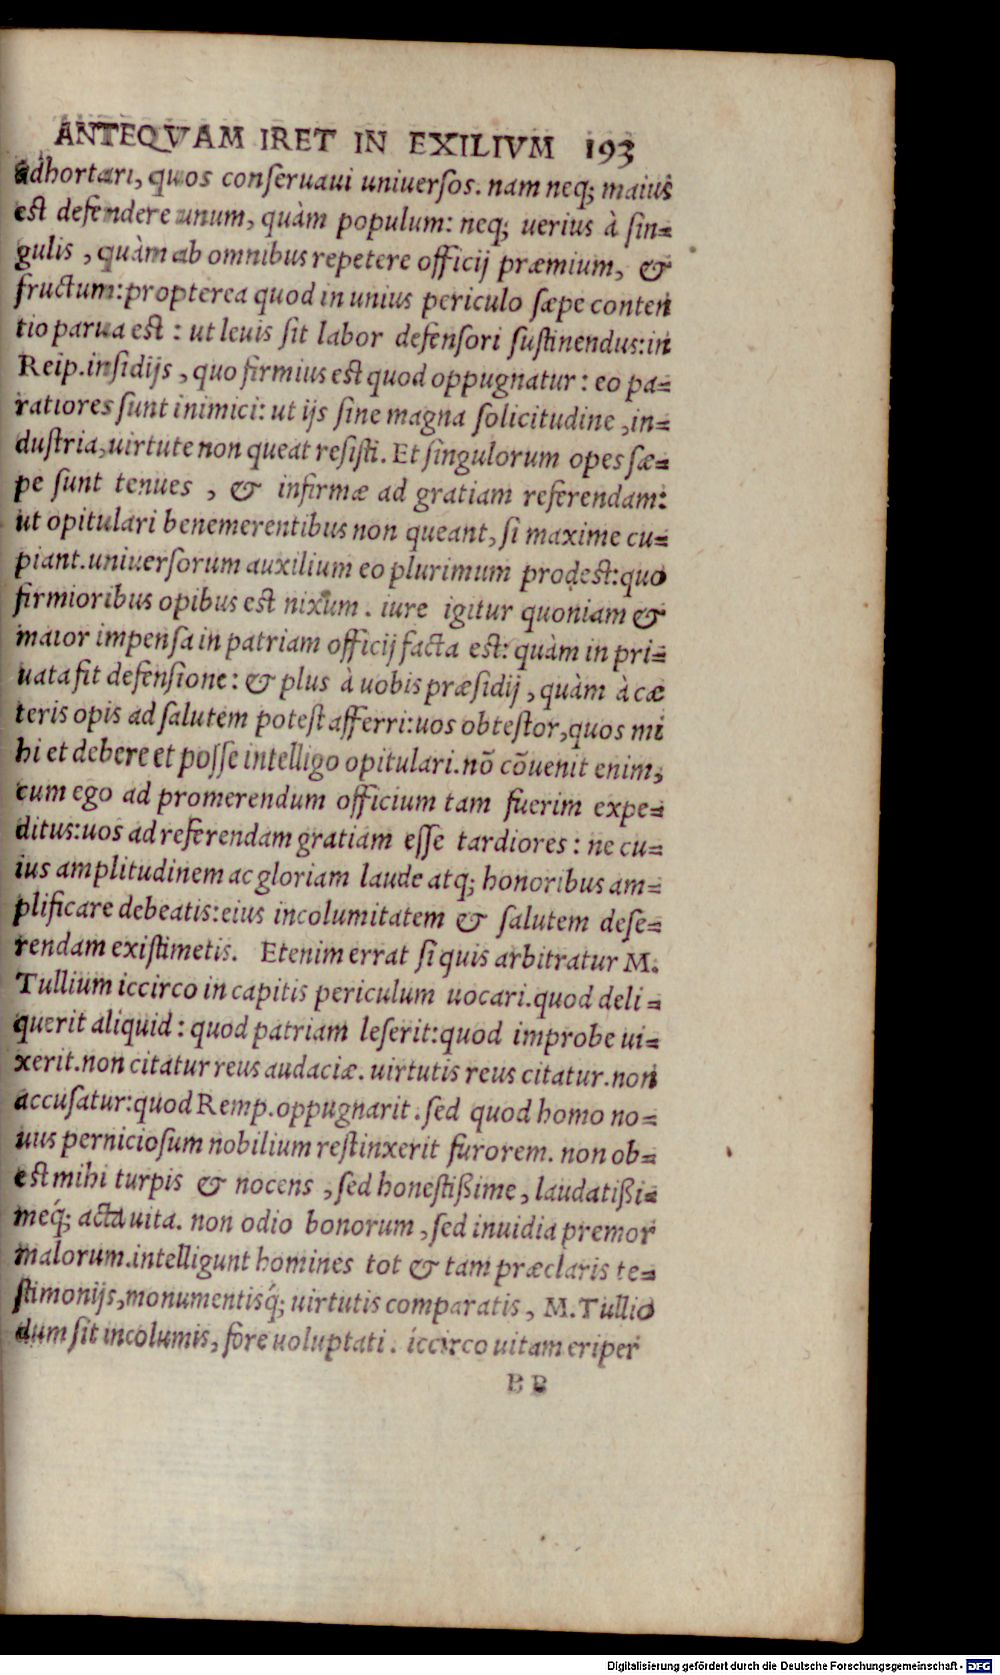 ANTEQVAM IRET IN EXILIVM 193
adhortari, quos conseruaui uniuersos. nam neq; maius
est defendere unum, quàm populum: neq; uerius à sin=
gulis, quàm ab omnibus repetere officij præmium, &
fructum: propterea quod in unius periculo sæpe conten
tio parua est: ut leuis sit labor defensori sustinendus: in
Reip. insidijs, quo firmius est quod oppugnatur: eo pa=
ratiores sunt inimici: ut ijs sine magna solicitudine, in=
dustria, uirtute non queat resisti. Et singulorum opes sæ=
pe sunt tenues, & infirmæ ad gratiam referendam:
ut opitulari benemerentibus non queant, si maxime cu=
piant. uniuersorum auxilium eo plurimum prodest: quo
firmioribus opibus est nixum. iure igitur quoniam &
maior impensa in patriam officij facta est: quàm in pri=
uata fit defensione: & plus à uobis præsidij, quàm à cæ
teris opis ad salutem potest afferri: uos obtestor, quos mi
hi et debere et posse intelligo opitulari. nõ cõuenit enim,
cum ego ad promerendum officium tam fuerim expe=
ditus: uos ad referendam gratiam esse tardiores: ne cu=
ius amplitudinem ac gloriam laude atq; honoribus am=
plificare debeatis: eius incolumitatem & salutem dese=
rendam existimetis. Etenim errat si quis arbitratur M.
Tullium iccirco in capitis periculum uocari. quod deli=
querit aliquid: quod patriam leserit: quod improbe ui=
xerit. non citatur reus audaciæ. uirtutis reus citatur. non
accusatur: quod Remp. oppugnarit. sed quod homo no=
uus perniciosum nobilium restinxerit furorem. non ob=
est mihi turpis & nocens, sed honestißime, laudatißi=
meq́; acta uita. non odio bonorum, sed inuidia premor
malorum. intelligunt homines tot & tam præclaris te=
stimonijs, monumentisq́; uirtutis comparatis, M. Tullio
dum sit incolumis, fore uoluptati. iccirco uitam eriper
BB
Digitalisierung gefördert durch die Deutsche Forschungsgemeinschaft - DFG